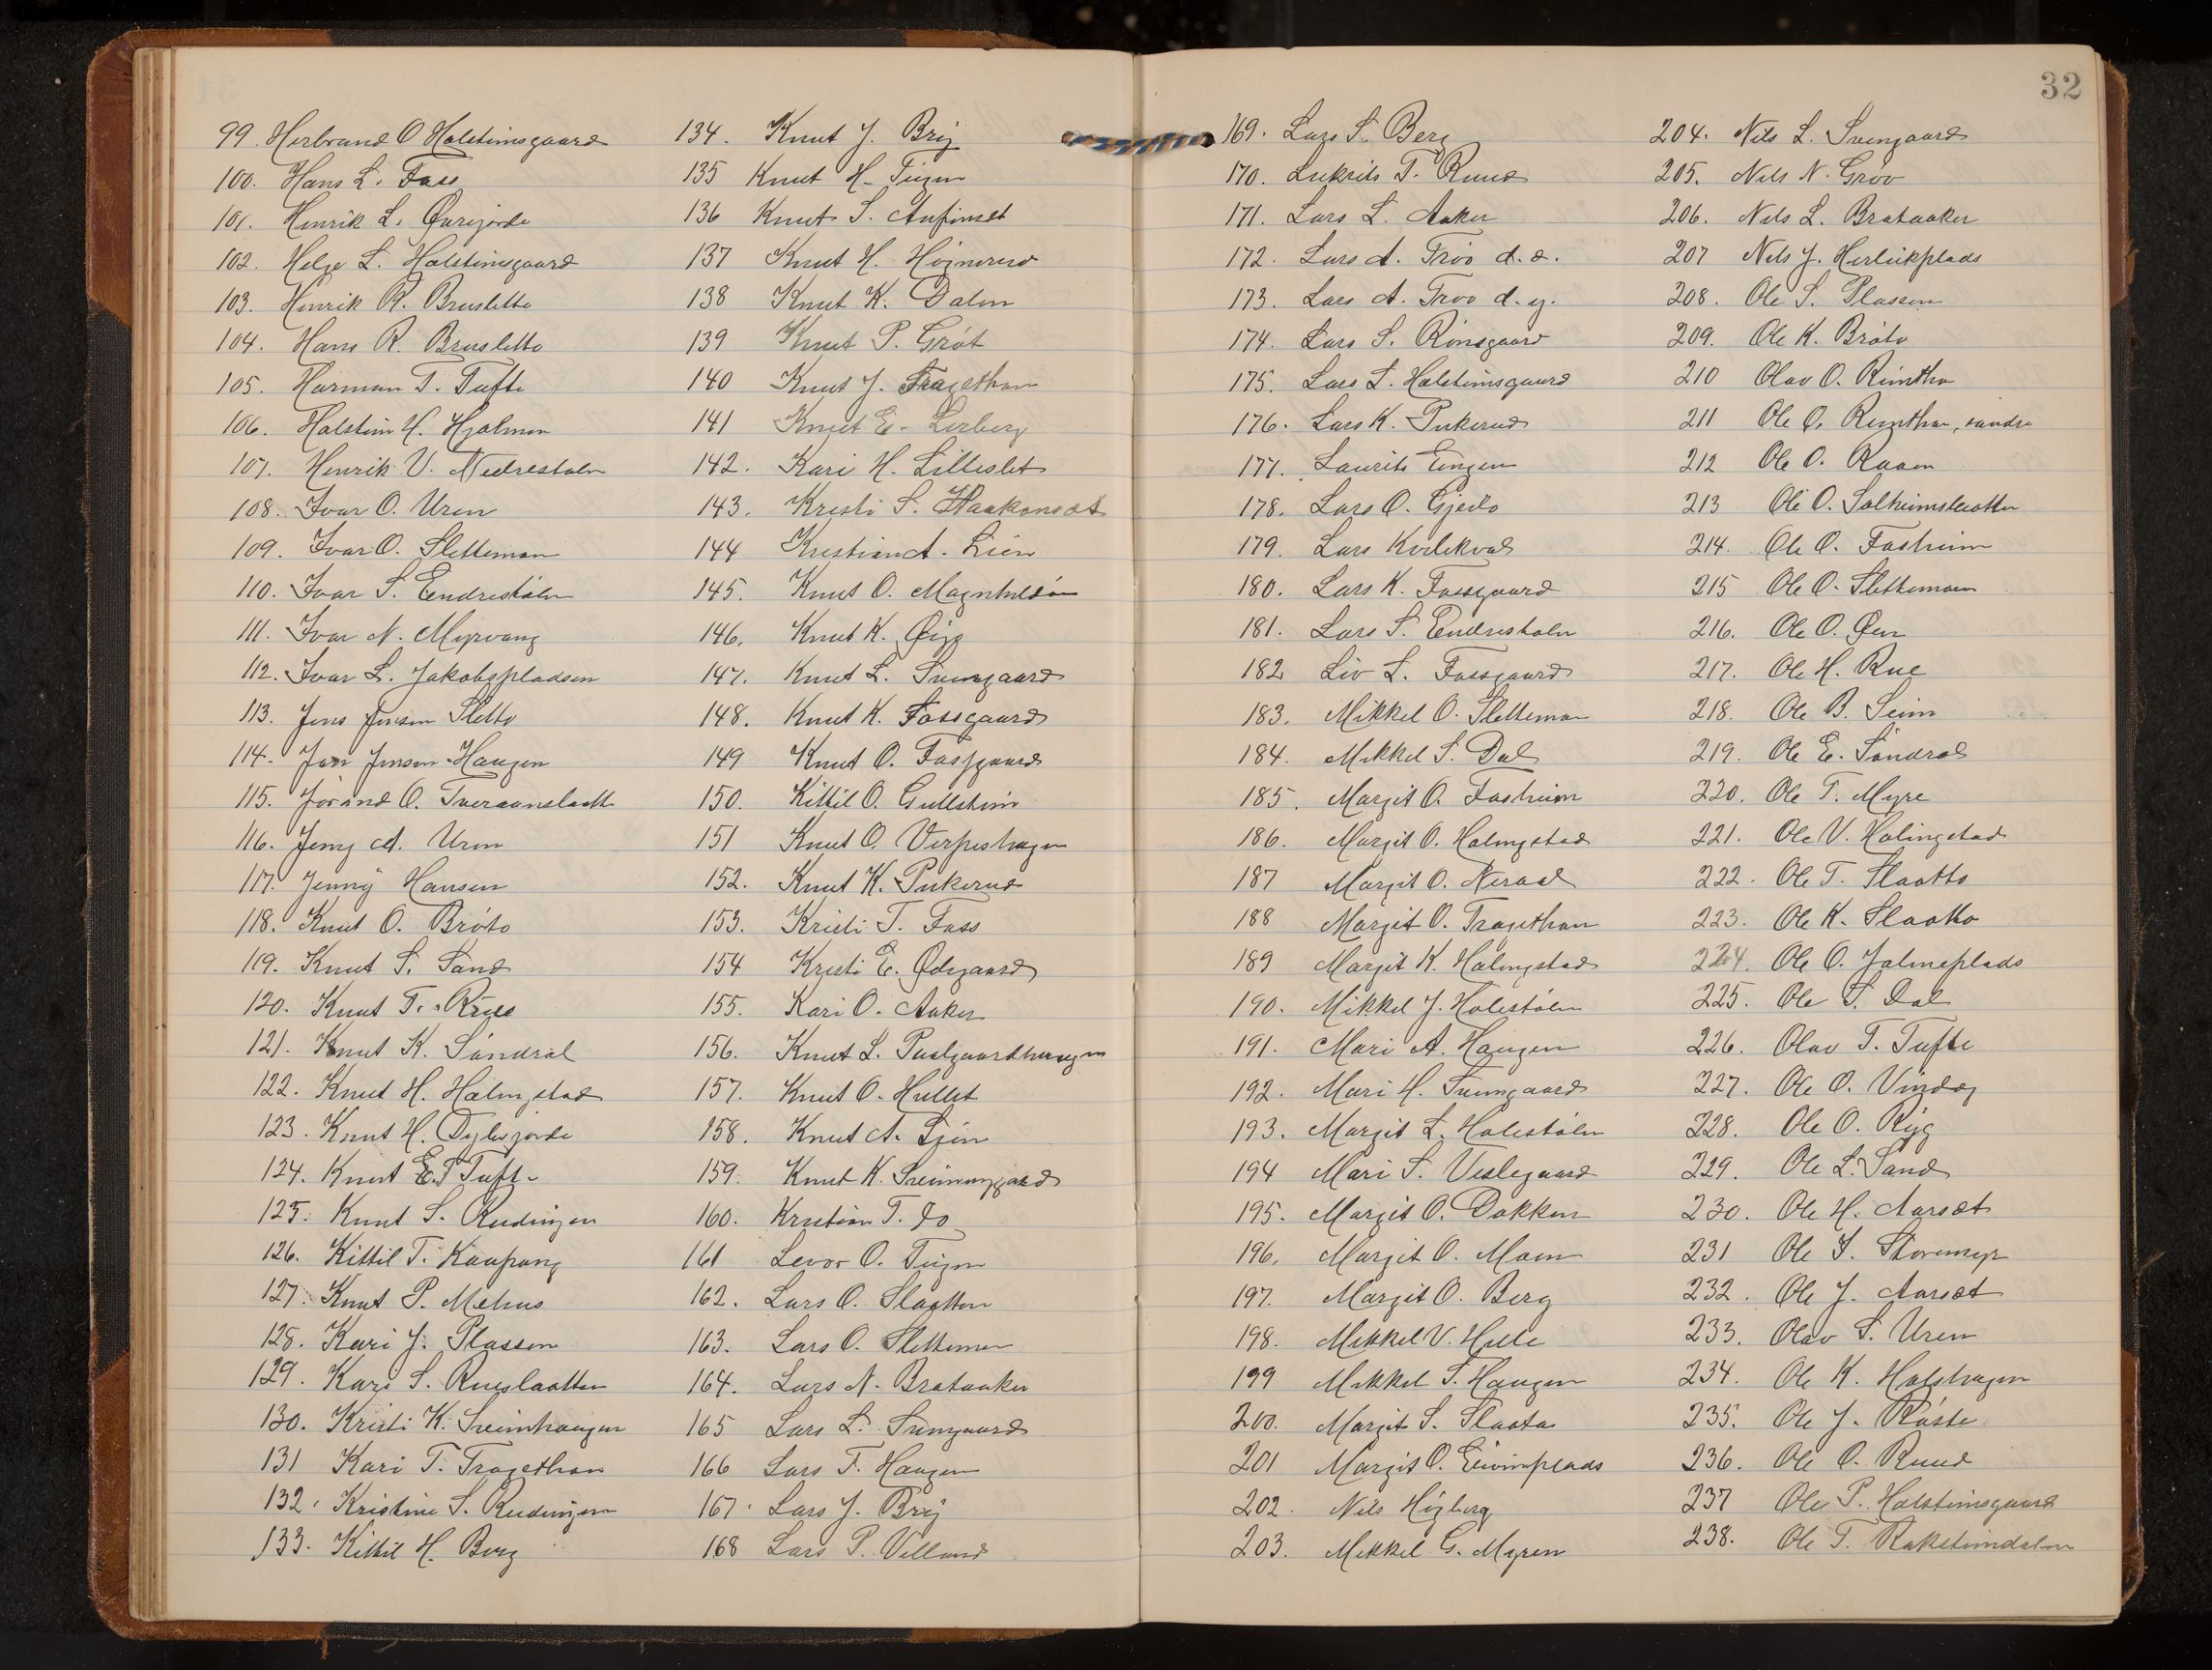 99. Herbrand O Holsteinsgaard
100. Hans L. Foss
101. Henrik L. Øvregjorde
102. Helge L. Holsteinsgaard
103. Henrik R. Brusletto
104. Hans R. Brusletto
105. Harman T. Tufte
106. Holstein H. Hjalmen
107. Henrik V. Nedrestølen
108. Ivar O. Uren
109. Ivar O. Sletteman
110. Ivar S. Endrestølen
111. Ivar N. Myrvang
112. Ivar L. Jakobspladsen
113. Jens Jensen Sletto
114. Jon Jonson Haugen
115. Jørand O. Tveraanslaatt
116. Jeng A. Uren
117. Jenny Hansen
118. Knut O. Brøto
119. Knut S. Sand
120. Knut T. Rue
121. Knut K. Søndrål
122. Knut H. Halingstad
123. Knut H. Dyljesjorde
124. Knut E. T Tufte
125. Knut S. Rudningen
126. Kittil T. Kaupang
127. Knut P. Mehus
128. Kari J. Plassen
129. Kari S. Rueslaatten
130. Kristi K. Sveinhaugen
131 Kari T. Tragethon
132. Kristine S. Rudningen
133. Kittil H. Berg
134. Knut J. Bry
135 Knut H. Tuigen
136 Knut S. Anfinset
137 Knut H. Høgnerud
138 Knut K. Dalen
139 Knut P. Grøt
140 Knut J. Tragethon
141 Knut E. Lerberg
142. Kari H. Lilleslet
143. Kristi S. Haakonset
144 Kristian A. Lien
145. Knut O. Magnhildøen
146. Knut K. Øygg
147. Knut L. Svengaard
148. Knut K. Fossgaard
149 Knut O. Fossgaard
150. Kittil O. Gullstein
151 Knut O. Verpeshagen
152. Knut K. Pukerud
153. Kristi T. Foss
154 Kristi E. Ødegaard
155. Kari O. Aaker
156. Knut L. Paalgaardhaugen
157. Knut O. Hullet
158. Knut A. Lien
159. Knut K. Sveinungaard
160. Kristian T. Do
161 Levor O. Tuigen
162. Lars O. Slaatten
163. Lars O. Sletteman
164. Lars N. Brataaker
165 Lars L. Svengaard
166 Lars T. Haugen
167. Lars J. Bry
168 Lars P. Villand
32
169. Lars S. Berg
170. Lukris T. Ruud
171. Lars L. Aaker
172. Lars A. Trøo d. e.
173. Lars A. Trøo d. y.
174. Lars S. Rønsgaard
175. Lars L. Holsteinsgaard
176. Lars K. Pukerud
177. Laurits Engen
178. Lars O. Gjedo
179. Lars Kvilekval
180. Lars K. Fossgaard
181. Lars S. Endrestølen
182 Liv L. Fossgaard
183. Mikkel O. Sletteman
184. Mikkel S. Dal
185. Margit O. Fosheim
186. Margit O. Halingstad
187 Margit O. Neraal
188 Margit O. Tragethon
189 Margit K. Halingstad
190. Mikkel J. Holestølen
191. Mari A. Haugen
192. Mari H. Svengaard
193. Margit L. Holestølen
194 Mari S. Veslegaard
195. Margit O. Dokken
196. Margit O. Moen
197. Margit O. Berg
198. Mikkel V. Hule
199 Mikkel S. Haugen
200. Margit S. Slaata
201 Margit O. Eivinplads
202. Nils Høgberg
203. Mikkel G. Myren
204. Nils L. Svengaard
205. Nils N. Grøv
206. Nils L. Brataaker
207 Nils J. Herleikplads
208. Ole S. Plassen
209. Ole K. Brøto
210 Olav O. Rimtho
211 Ole O. Rimtho, søndre
212 Ole O. Raaen
213 Ole O. Solheimslaatten
214. Ole O. Fosheim
215 Ole O. Sletteman
216. Ole O. Øen
217. Ole H. Rue
218. Ole B. Seim
219. Ole E. Søndrål
220. Ole T. Myre
221. Ole V. Halingstad
222. Ole T. Slaatto
223. Ole K. Slaatto
224. Ole O. Jalmeplads
225. Ole S. Dal
226. Olav T. Tufte
227. Ole O. Vindeg
228. Ole O. Rygg
229. Ole L. Sand
230. Ole H. Aarset
231 Ole S. Storemyr
232. Ole J. Aarset
233. Olav S. Uren
234. Ole K. Holshagen
235. Ole J. Røste
236. Ole O. Ruud
237 Ole P. Holsteinsgaard
238. Ole T. Rakesteindalen